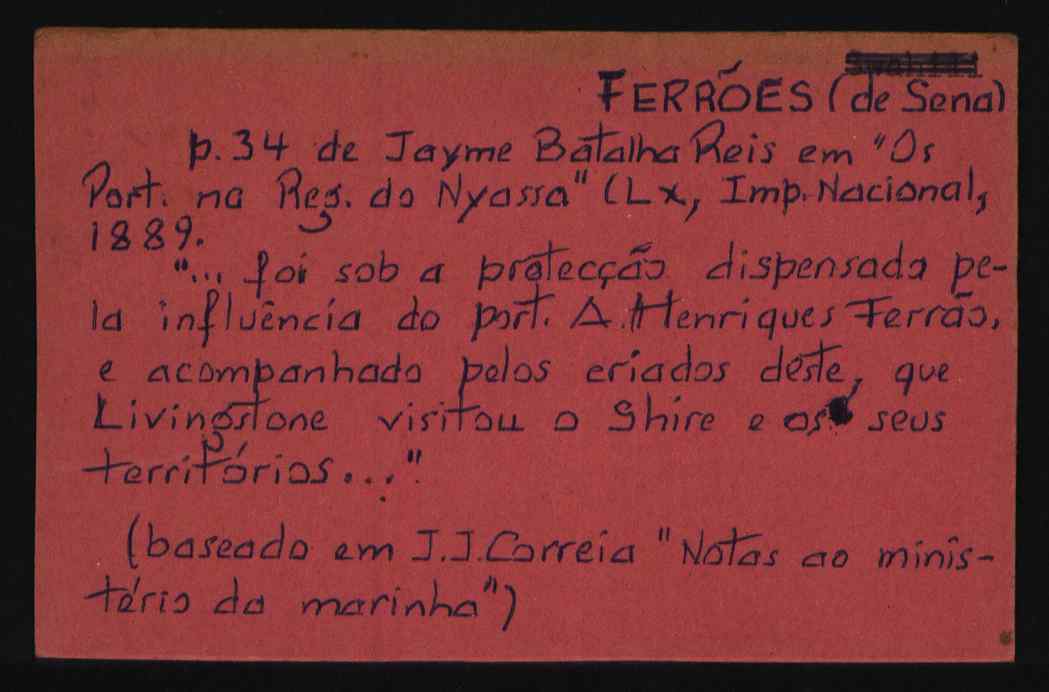 FERRÕES (de Sena)
p.34 de Jayme Batalha Reis em "Os
Port. na Reg. do Nyassa" (Lx, Imp. Nacional,
1889.
"... foi sob a protecção dispensada pe-
la influência do port. A. Henriques Ferrão,
e acompanhado pelos criados dêste, que
Livingstone visitou o Shire e os seus
territórios..."
(baseado em J.J. Correia "Notas ao minis-
tério da marinha")